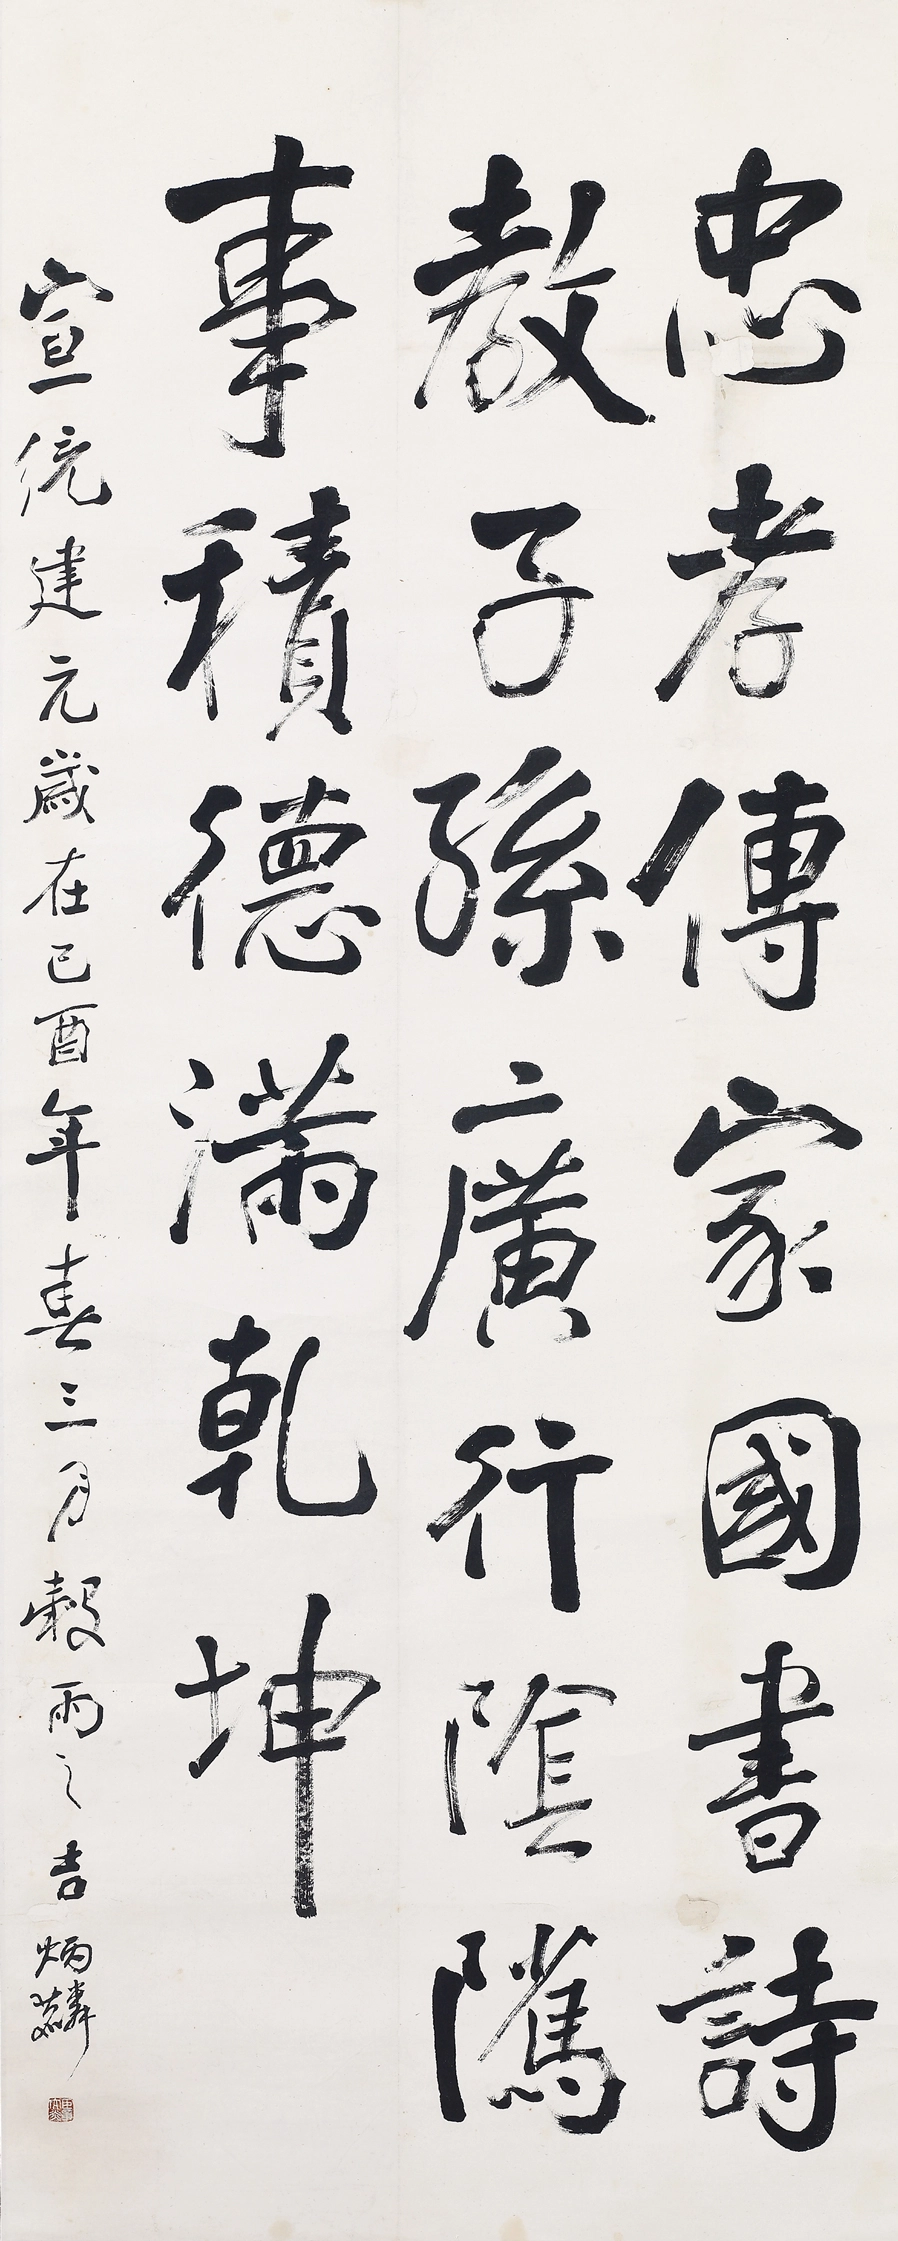 忠孝傳家國書詩
教子孫廣行陰隲
事積德滿乾坤
宣統建元歲在己酉年春三月穀雨之吉炳麟